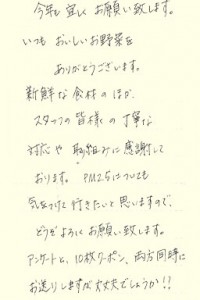 今年も宜しくお願い致します。
いつも おいしいお野菜を
ありがとうございます。
新鮮な食材のほか、
スタッフの皆様の丁寧な
対応や 取組みに感謝して
おります。 PM2.5についても
気をつけて行きたいと思いますので、
どうぞよろしくお願い致します。
アンケートと、10枚クーポン、両方同時に
お送りしますが大丈夫でしょうか!!